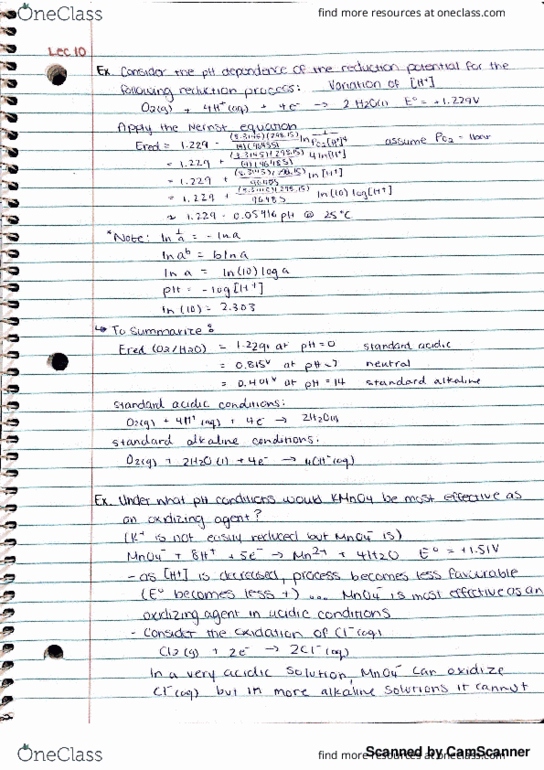 OneClass
find more resources at oneclass.com
Lec 10
Ex. Consider the pH dependence of the reduction potential for the
following reduction process: Variation of [H⁺]
O₂(g) + 4H⁺(aq) + 4e⁻ → 2H₂O(l) E° = +1.229V
Apply the Nernst equation
Ered = 1.229 - (8.3145)(298.15)/(4)(96485) ln 1/Po₂[H⁺]⁴ assume Po₂ = 1bar
= 1.229 + (8.3145)(298.15)/(4)(96485) 4ln[H⁺]
= 1.229 + (8.3145)(298.15)/96485 ln[H⁺]
= 1.229 + (8.3145)(298.15)/96485 ln(10) log[H⁺]
≈ 1.229 - 0.05916 pH @ 25°C
*Note: ln 1/a = -ln a
ln aᵇ = b ln a
ln a = ln(10) log a
pH = -log[H⁺]
ln(10) = 2.303
↳ To summarize:
Ered (O₂/H₂O) = 1.229v at pH=0 standard acidic
= 0.815v at pH=7 neutral
= 0.401v at pH=14 standard alkaline
standard acidic conditions:
O₂(g) + 4H⁺(aq) + 4e⁻ → 2H₂O(l)
standard alkaline conditions:
O₂(g) + 2H₂O(l) + 4e⁻ → 4OH⁻(aq)
Ex. Under what pH conditions would KMnO₄ be most effective as
an oxidizing agent?
(K⁺ is not easily reduced but MnO₄⁻ is)
MnO₄⁻ + 8H⁺ + 5e⁻ → Mn²⁺ + 4H₂O E° = +1.51V
- as [H⁺] is decreased, process becomes less favourable
(E° becomes less +) ... MnO₄⁻ is most effective as an
oxidizing agent in acidic conditions
- Consider the oxidation of Cl⁻(aq)
Cl₂(g) + 2e⁻ → 2Cl⁻(aq)
In a very acidic solution, MnO₄⁻ can oxidize
Cl⁻(aq) but in more alkaline solutions it cannot
OneClass
find more resources at oneclass.com
Scanned by CamScanner